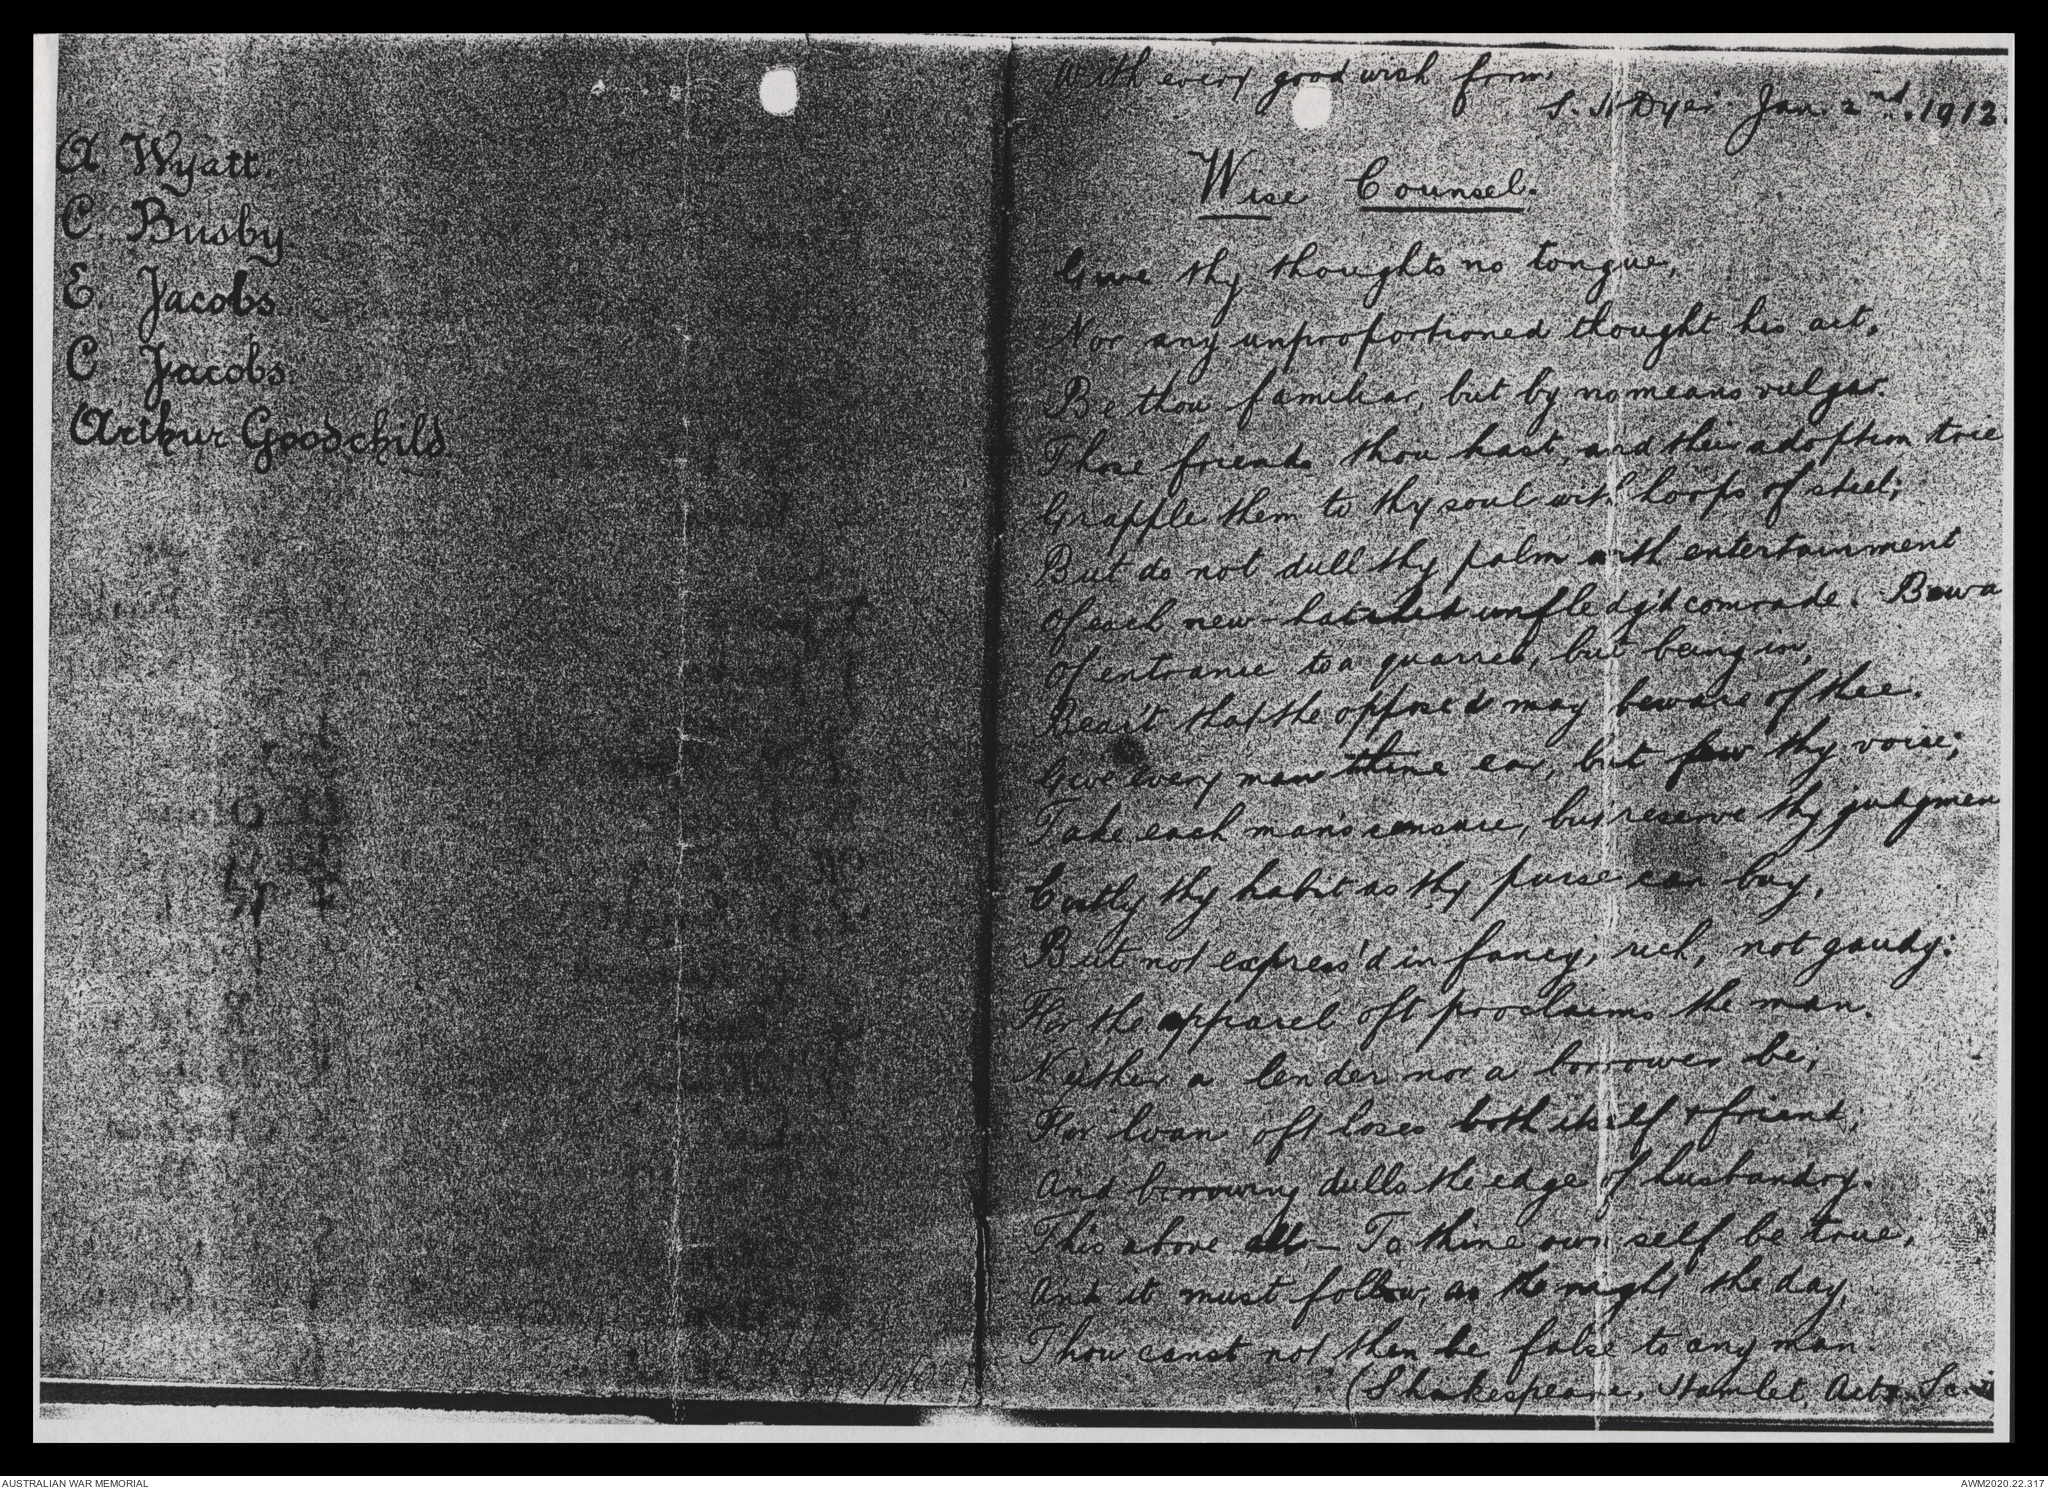 A. Wyatt.
C. Busby
E. Jacobs
C. Jacobs
Arthur Goodchild
With every good wish from
S. H Dyer Jan. 2nd. 1912.
Wise Counsel.
Give thy thoughts no tongue,
Nor any unproportioned thought his act.
Be thou familiar, but by no means vulgar.
Those friends thou hast, and their adoption trie
Grapple them to thy soul with hoops of steel;
But do not dull thy palm with entertainment
Of each new-hatched unfledg'd comrade. Bewa
Of entrance to a quarrel, but being in,
Bear't that the opposed may beware of thee.
Give every man thine ear, but few thy voice;
Take each man's censure, but reserve thy judgmen
Costly thy habit as thy purse can buy,
But not express'd in fancy; rich, not gaudy:
For the apparel oft proclaims the man.
Neither a lender nor a borrower be;
For loan oft loses both itself & friend,
And borrowing dulls the edge of husbandry.
This above all - To thine own self be true,
And it must follow, as the night the day,
Thou canst not then be false to any man.
(Shakespeare. Hamlet, Act Sc.
AUSTRALIAN WAR MEMORIAL
AWM2020.22.317